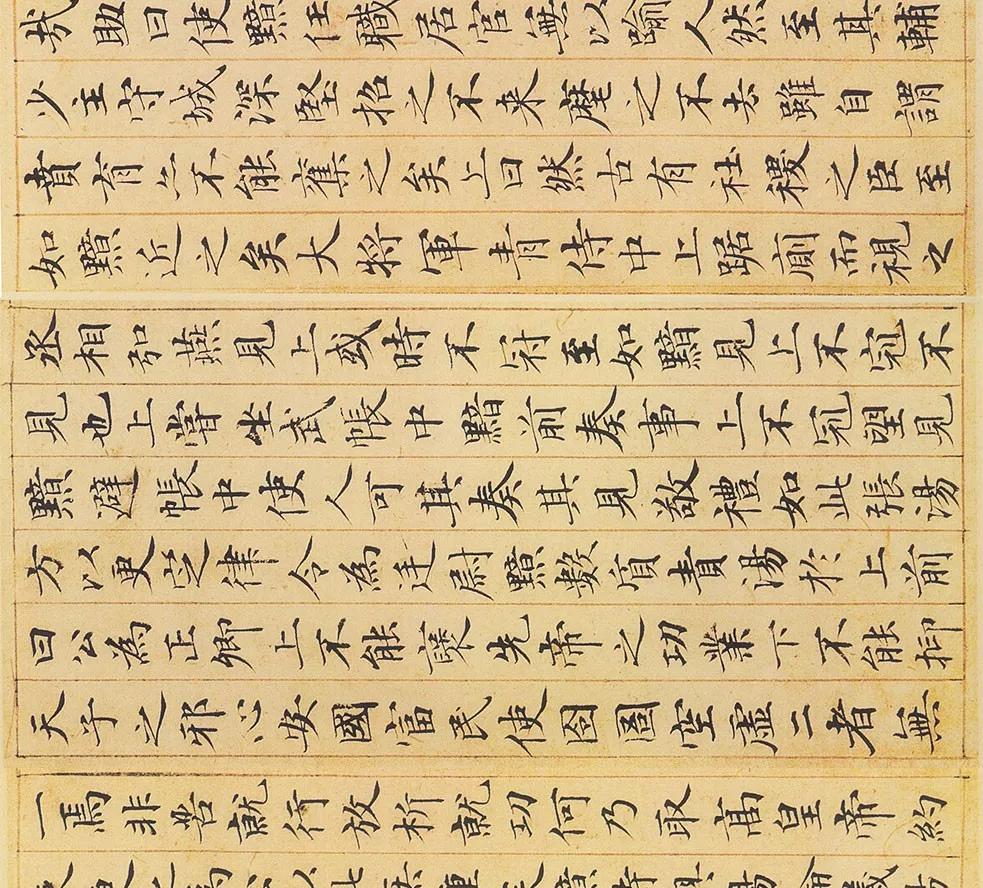 哉助曰使黯任職居官無以踰人然至其輔
少主守城深堅招之不来麾之不去雖自謂
賁育亦不能奪之矣上曰然古有社稷之臣至
如黯近之矣大將軍青侍中上踞廁而視之
丞相弘燕見上或時不冠至如黯見上不冠不
見也上嘗坐武帳中黯前奏事上不冠望見
黯避帳中使人可其奏其見敬禮如此張湯
方以更定律令為廷尉黯數質責湯於上前
曰公為正卿上不能襃先帝之功業下不能抑
天子之邪心安國富民使囹圄空虛二者無
一焉非苦就行放析就功何乃取高皇帝約